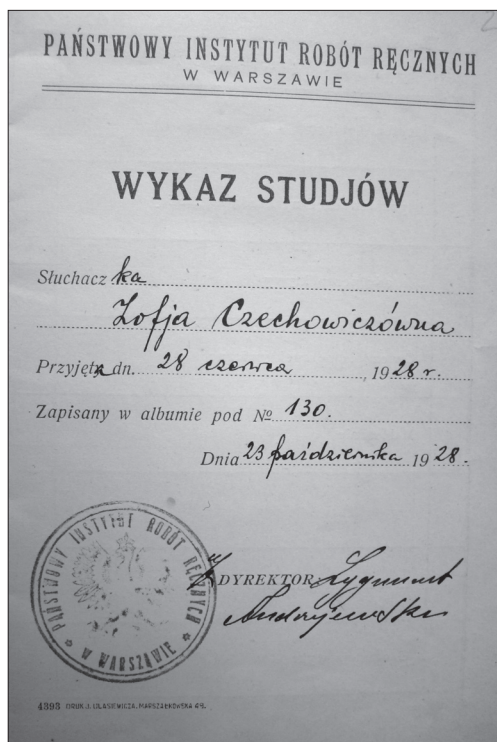 PAŃSTWOWY INSTYTUT ROBÓT RĘCZNYCH
W WARSZAWIE
WYKAZ STUDJÓW
Słuchacz ka
Zofja Czechowiczówna
Przyjęta dn. 28 czerwca, 1928 r.
Zapisany w albumie pod № 130.
Dnia 23 października 1928.
DYREKTOR Zygmunt
PAŃSTWOWY INSTYTUT ROBÓT RĘCZNYCH
W WARSZAWIE
4393 DRUK J. ULASIEWICZA, MARSZAŁKOWSKA 49.